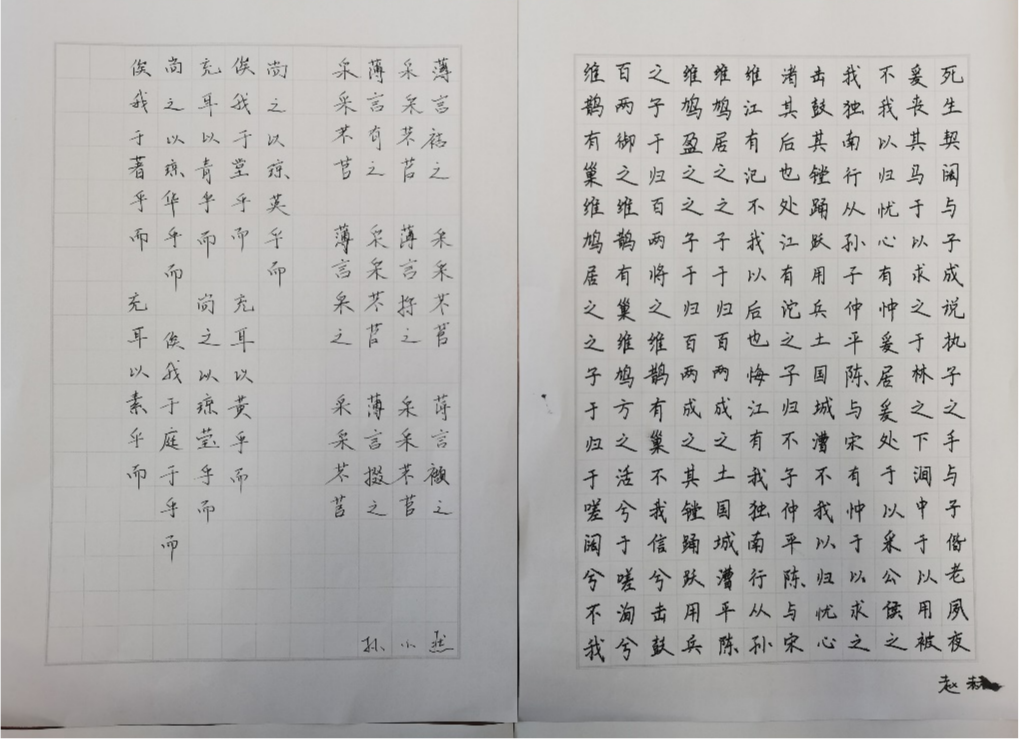 死生契阔与子成说执子之手与子偕老夙夜
爰丧其马于以求之于林之下涧中于以用被
不我以归忧心有忡爰居爰处于以采公侯之
我独南行从孙子仲平陈与宋有忡于以求之
击鼓其镗踊跃用兵土国城漕不我以归忧心
渚其后也处江有沱之子归不子仲平陈与宋
维江有汜不我以后也悔江有我独南行从孙
维鸠居之之子于归百两成之土国城漕平陈
维鸠盈之之子于归百两成之其镗踊跃用兵
之子于归百两将之维鹊有巢不我信兮击鼓
百两御之维鹊有巢维鸠方之活兮于嗟洵兮
维鹊有巢维鸠居之之子于归于嗟阔兮不我
赵
薄言袺之 采采芣苢 薄言襭之
采采芣苢 薄言捋之 采采芣苢
薄言有之 采采芣苢 薄言掇之
采采芣苢 薄言采之 采采芣苢
尚之以琼英乎而
俟我于堂乎而 充耳以黄乎而
充耳以青乎而 尚之以琼莹乎而
尚之以琼华乎而 俟我于庭于乎而
俟我于著乎而 充耳以素乎而
孙小然